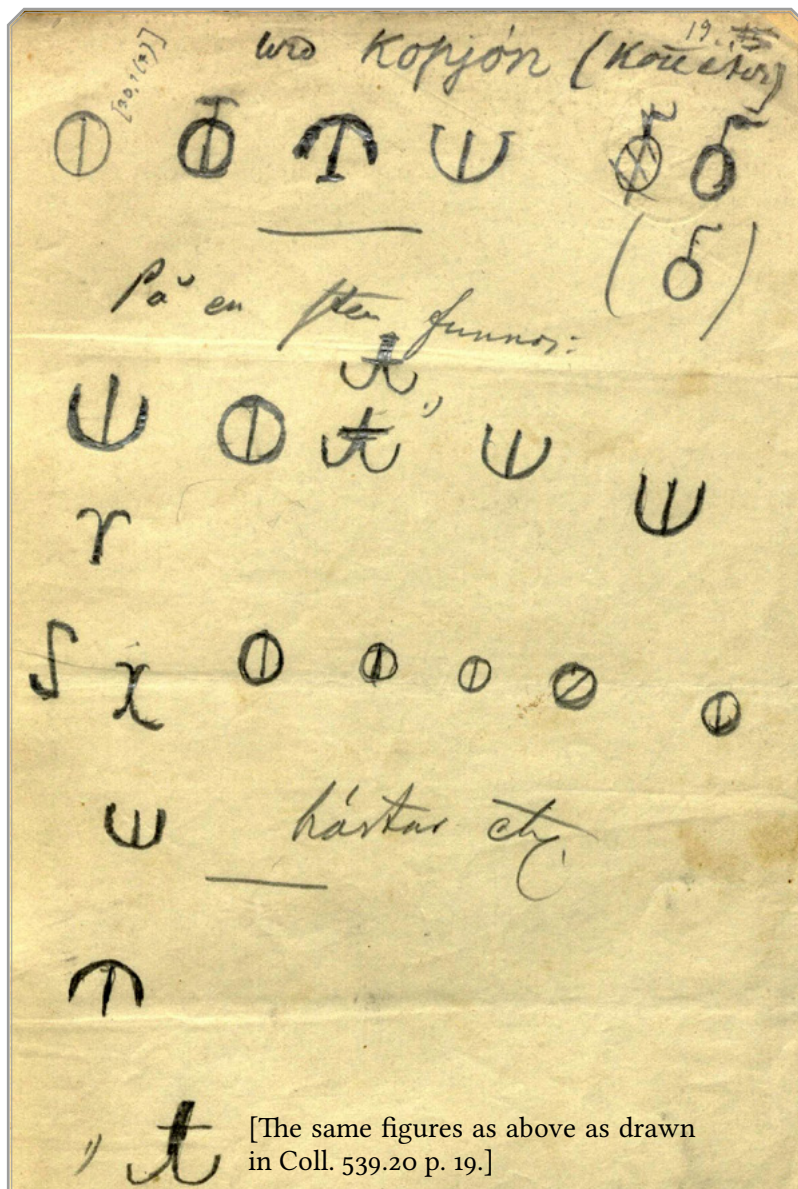 [30, 1(7)]
19.
wid Kopjón (Копёнъ)
På en sten funnos:
hästar etc.
[The same figures as above as drawn
in Coll. 539.20 p. 19.]